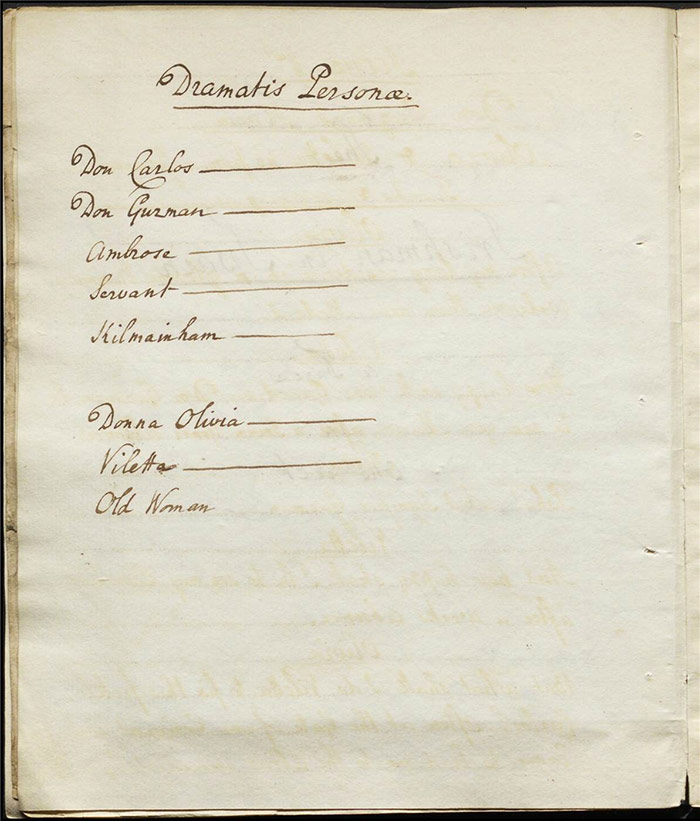 Dramatis Personæ.
Don Carlos
Don Guzman
Ambrose
Servant
Kilmainham
Donna Olivia
Viletta
Old Woman